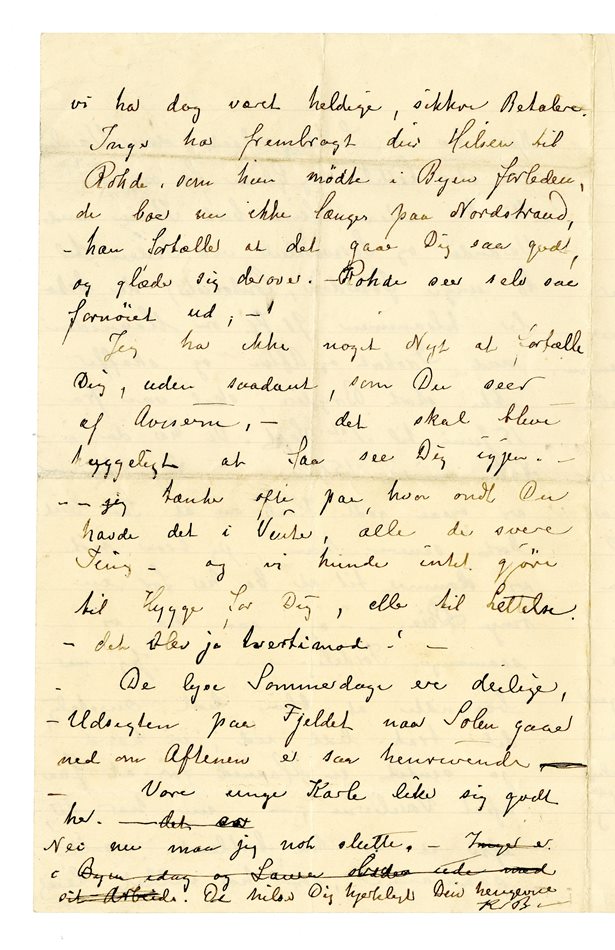 vi ha dog været heldige, sikkre Betalere.
Inger ha frembragt din Hilsen til
Rohde, som hun mødte i Byen forleden,
de boe nu ikke længer paa Nordstrand,
- han fortæller at det gaar Dig saa godt,
og glæder sig derover. - Rohde seer selv saa
fornöiet ud, -!
Jeg ha ikke noget Nyt at fortælle
Dig, uden saadant, som Du seer
af Aviserne, - det skal blive
hyggeligt at faa see Dig igjen. -
- - jeg tænker ofte paa, hvor ondt Du
havde det i Vinter, alle de svere
Ting - og vi kunde intet gjöre
til Hygge for Dig, eller til Lettelse.
- det blev jo tvertimod! -
- De lyse Sommerdage ere deilige,
- Udsigten paa Fjeldet naar Solen gaar
ned om Aftenen er saa henrivende -
- Vore unge Karle like sig godt
her. - det er
Nei nu maa jeg nok slutte. - Inger er
i Byen idag og ude med
sit Arbeide. De hilse Dig hjerteligt Din hengivne